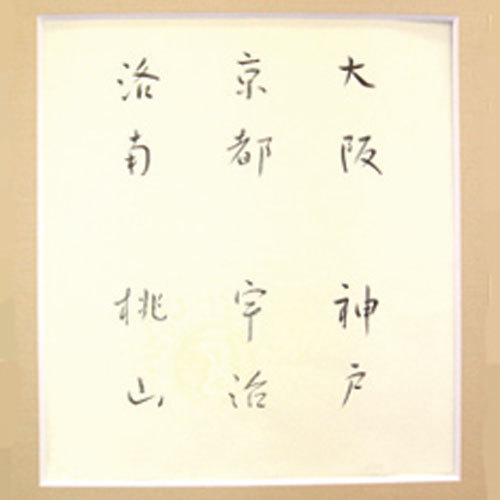 大阪 神戸
京都 宇治
洛南 桃山